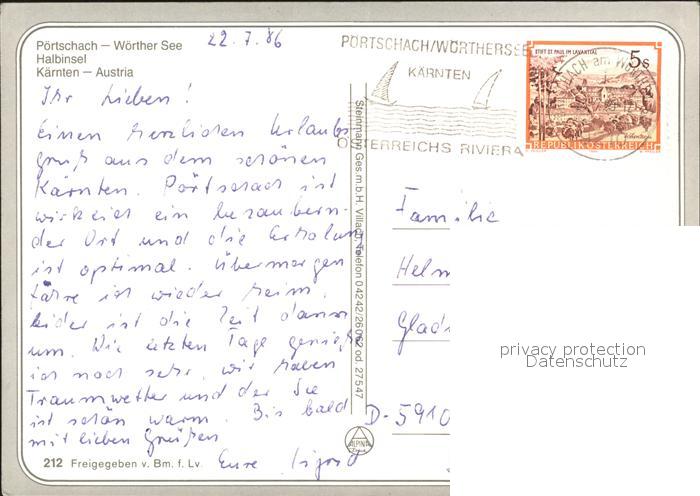 Pörtschach – Wörther See
Halbinsel
Kärnten – Austria
22.7.86
Ihr Lieben!
Einen herzlichen Urlaubs-
gruß aus dem schönen
Kärnten. Pörtschach ist
wirklich ein bezaubern-
der Ort und die Erholung
ist optimal. Übermorgen
fahre ich wieder heim.
Leider ist die Zeit dann
um. Die letzten Tage genieße
ich noch sehr, wir haben
Traumwetter und der See
ist schön warm. Bis bald
mit lieben Grüßen
Eure Sigrid
212 Freigegeben v. Bm. f. Lv.
Steinmann Ges.m.b.H. Villach, Telefon 04242/26062 od. 27547
ALPINA
PÖRTSCHACH/WÖRTHERSEE
KÄRNTEN
ÖSTERREICHS RIVIERA
STIFT ST. PAUL IM LAVANTTAL
5 S
REPUBLIK ÖSTERREICH
Familie
Helm
Glad
D-5910
privacy protection
Datenschutz